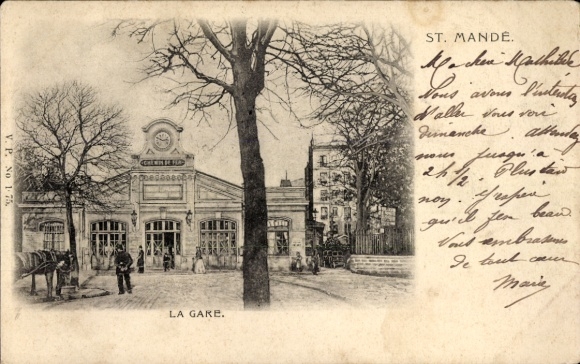 ST. MANDÉ.
Ma chère Mathilde
Nous avons l'intention
d'aller vous voir
dimanche. attendez
nous jusqu'à
2 h 1/2. Plus tard
non. J'espère
qu'il fera beau.
Vous embrassons
de tout cœur
Marie
CHEMIN DE FER
V. P. No 1-75
LA GARE.